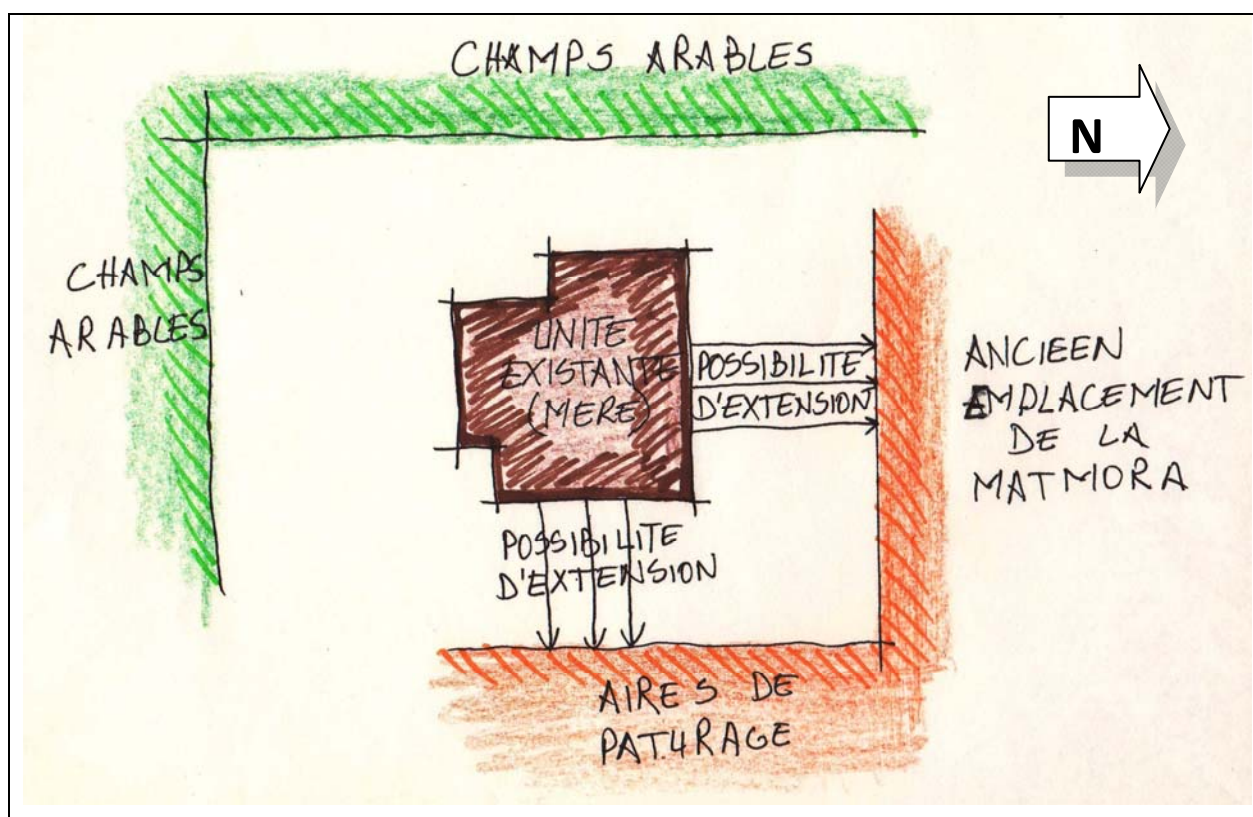 CHAMPS ARABLES
N
CHAMPS
ARABLES
UNITE
EXISTANTE
(MERE)
POSSIBILITE
D'EXTENSION
ANCIEEN
EMPLACEMENT
DE LA
MATMORA
POSSIBILITE
D'EXTENSION
AIRES DE
PATURAGE